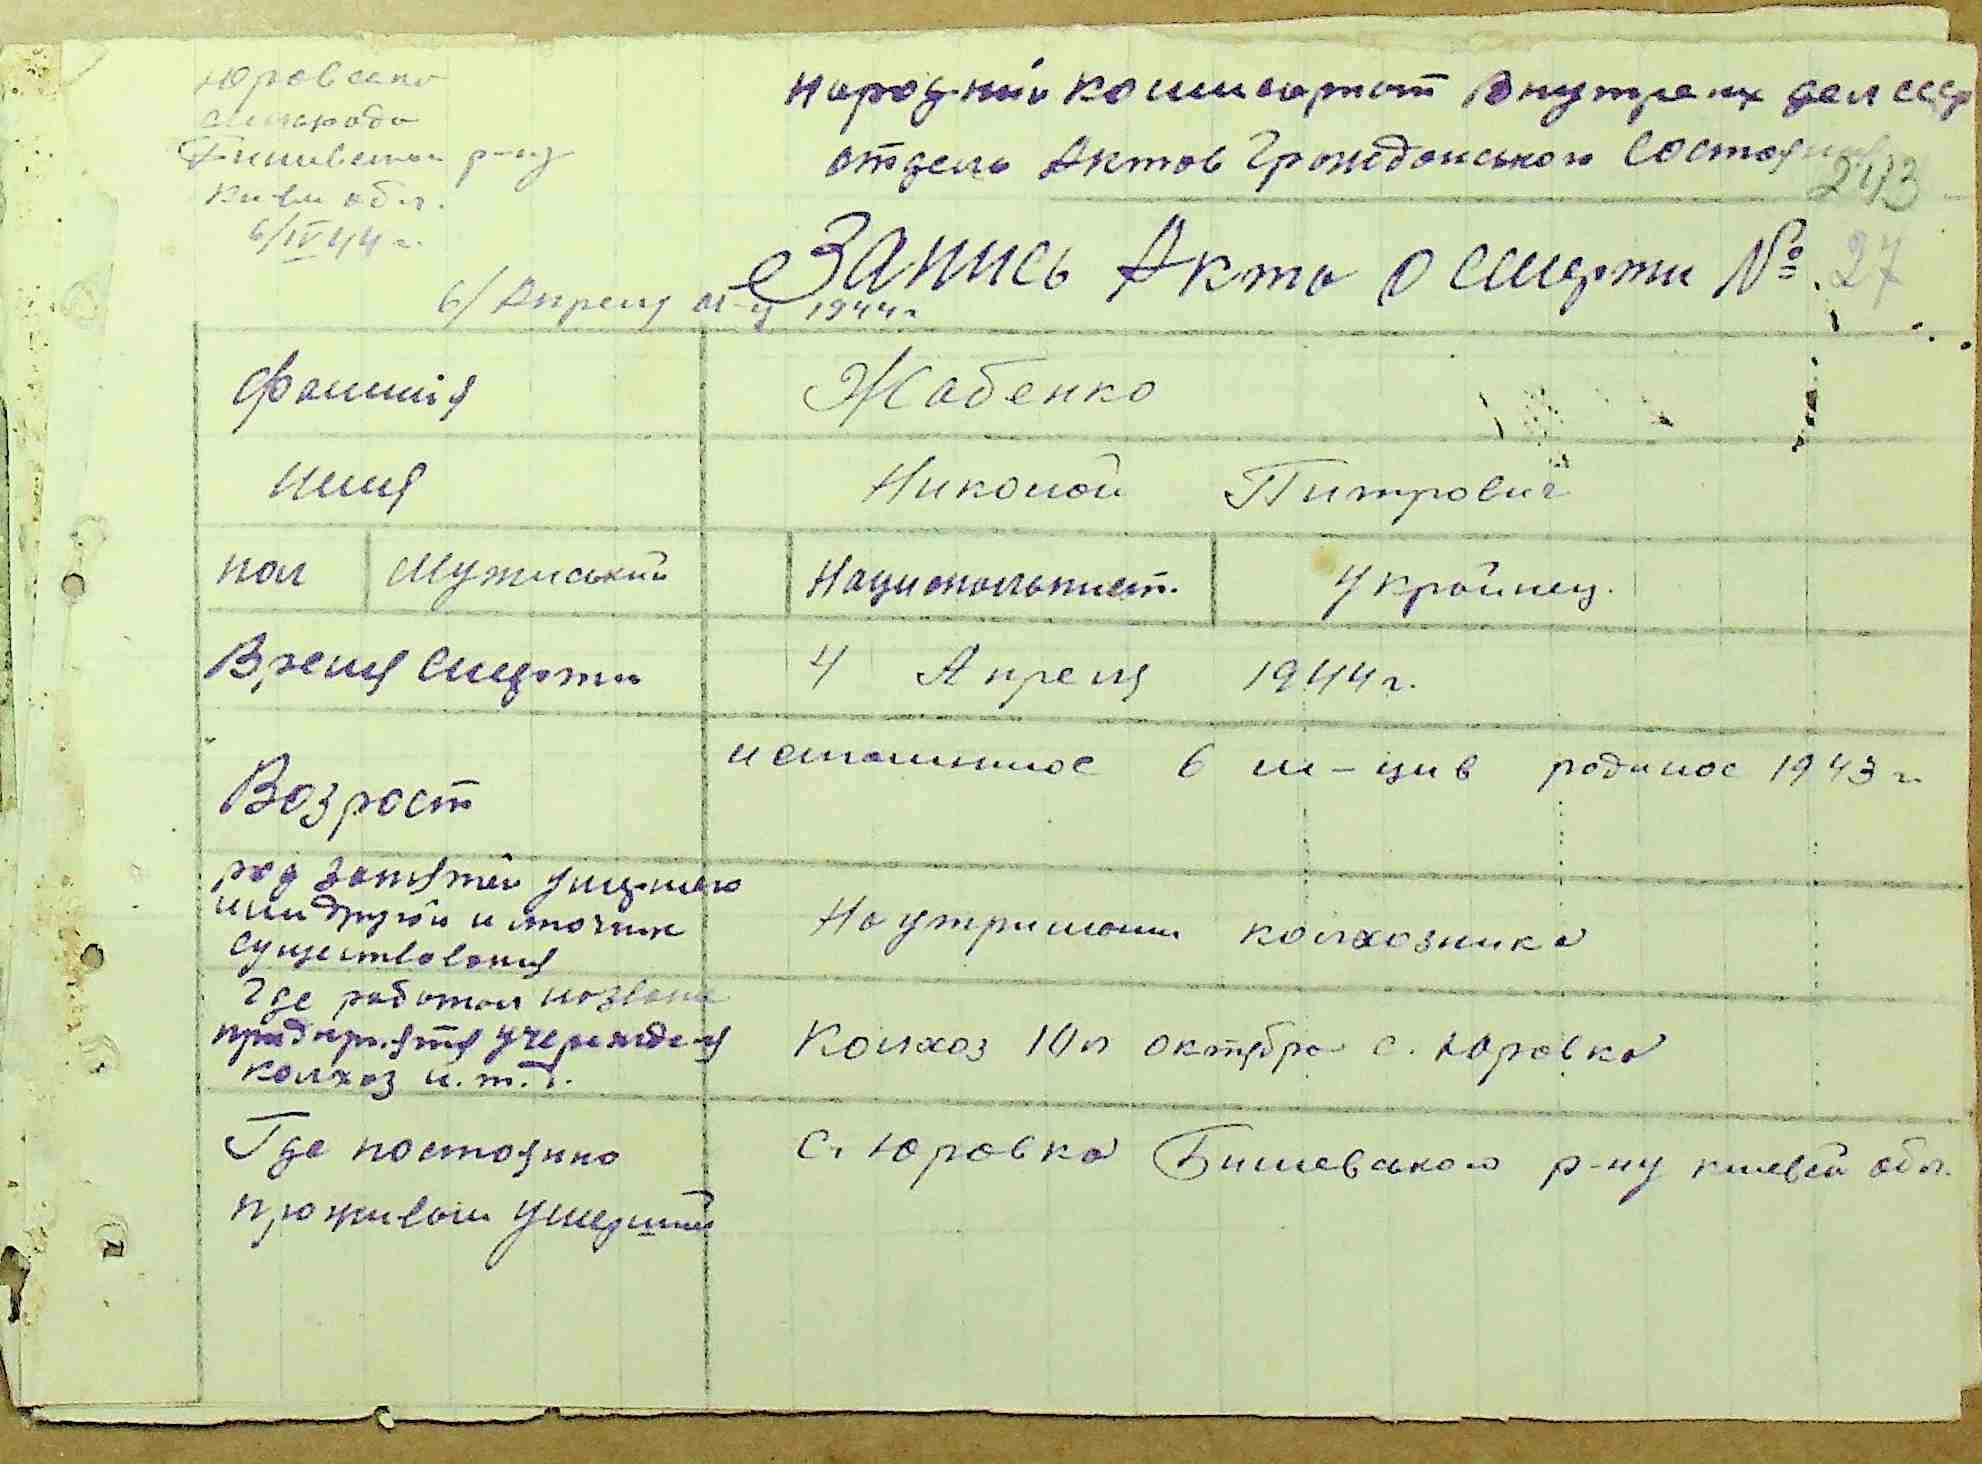 Юровська
сільрада
Бишивський р-ну
Київ обл.
6/IV 44 г.
Народний Комисариат Внутрених дел СССР
отдель Актов Гражданського Состояния
243
Запись Акта о смерти №. 27
6/ Апреля м-ця 1944 г
Фамилія Жабенко
имия Николай Питрович
пол Мужиський Национальност. Украйнец.
Время смерти 4 Апреля 1944 г.
Возраст исполнилос 6 м-цив родилос 1943 г.
род занятей умершего
или другой источник
существования
На утримани колхозника
Где работал название
придприятия учереждения
колхоз и. т. д.
Колхоз 10 л октября с. Юровка
Где постояно
проживал умерший
с. Юровка Бишевського р-ну киевсй обл.